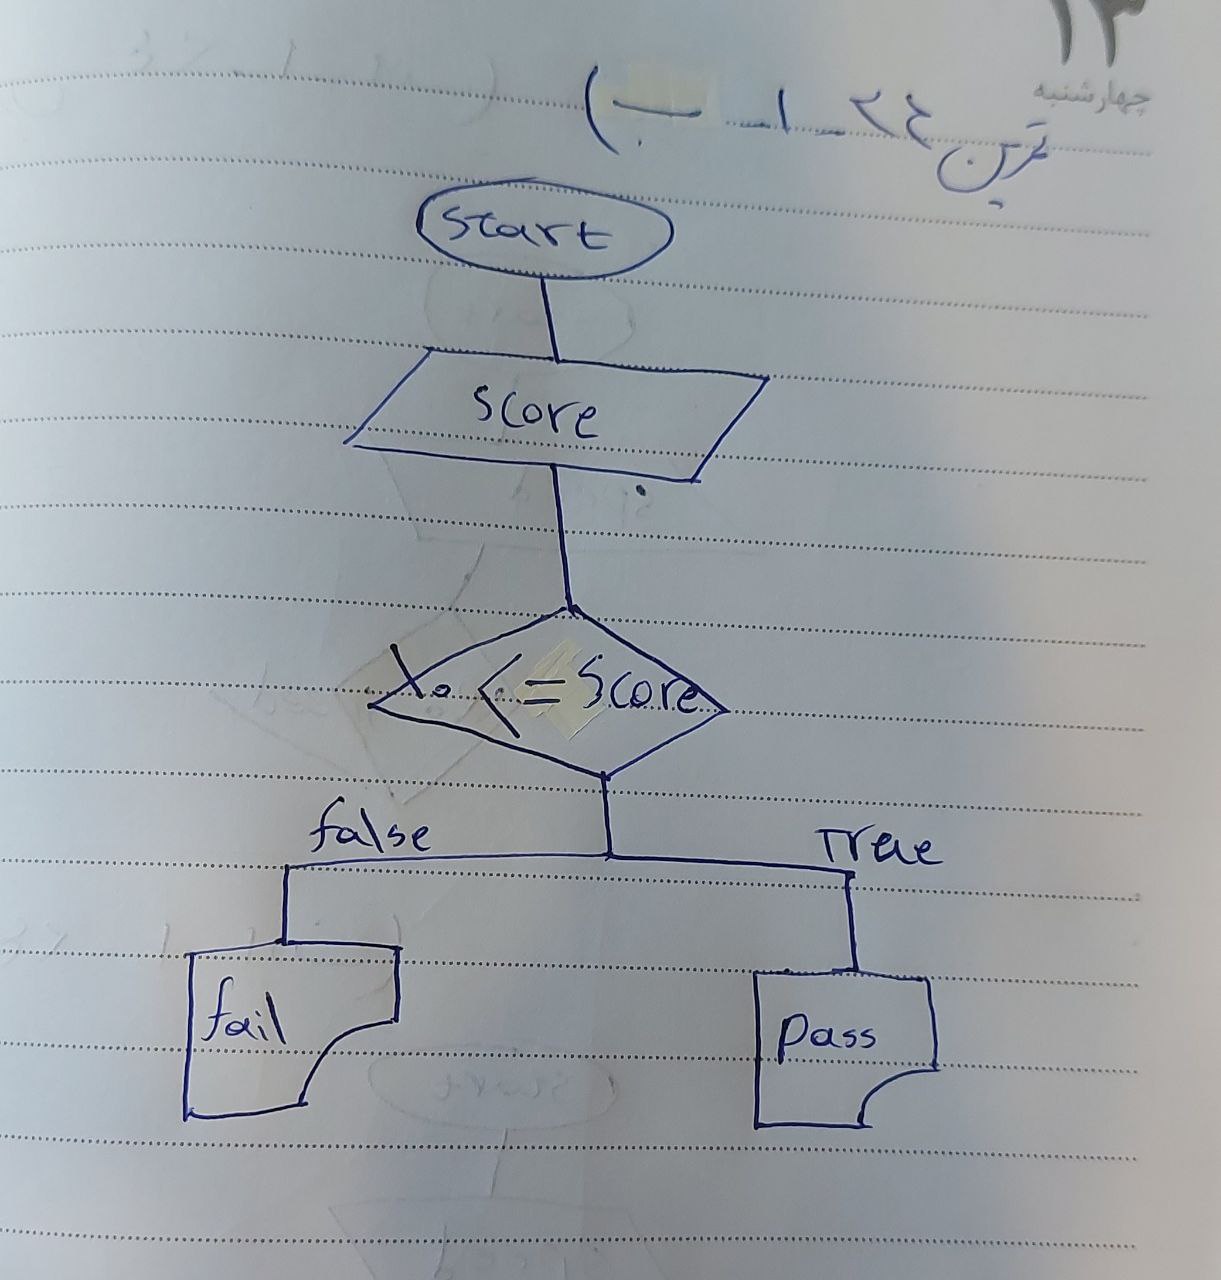 ۱۳
چهارشنبه
تمرین ۲۴ـ۱ـ ب)
start
score
۱۰ <= Score
false
True
fail
pass